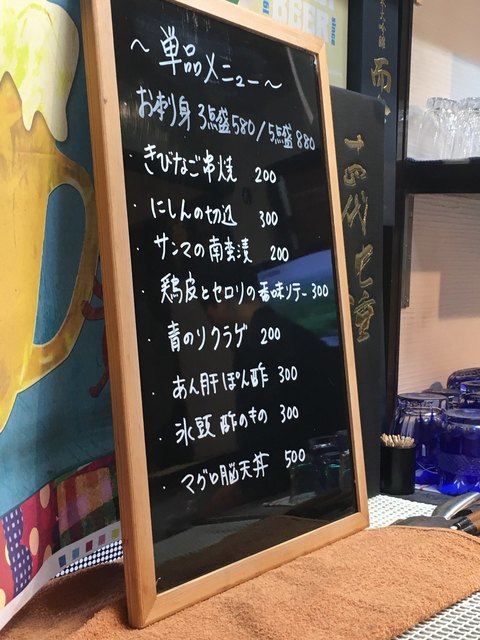 ～単品メニュー～
お刺身 3点盛580/5点盛880
・きびなご串焼 200
・にしんの切込 300
・サンマの南蛮漬 200
・鶏皮とセロリの香味ソテー 300
・青のりクラゲ 200
・あん肝ぽん酢 300
・氷頭酢のもの 300
・マグロ脳天丼 500
BEER